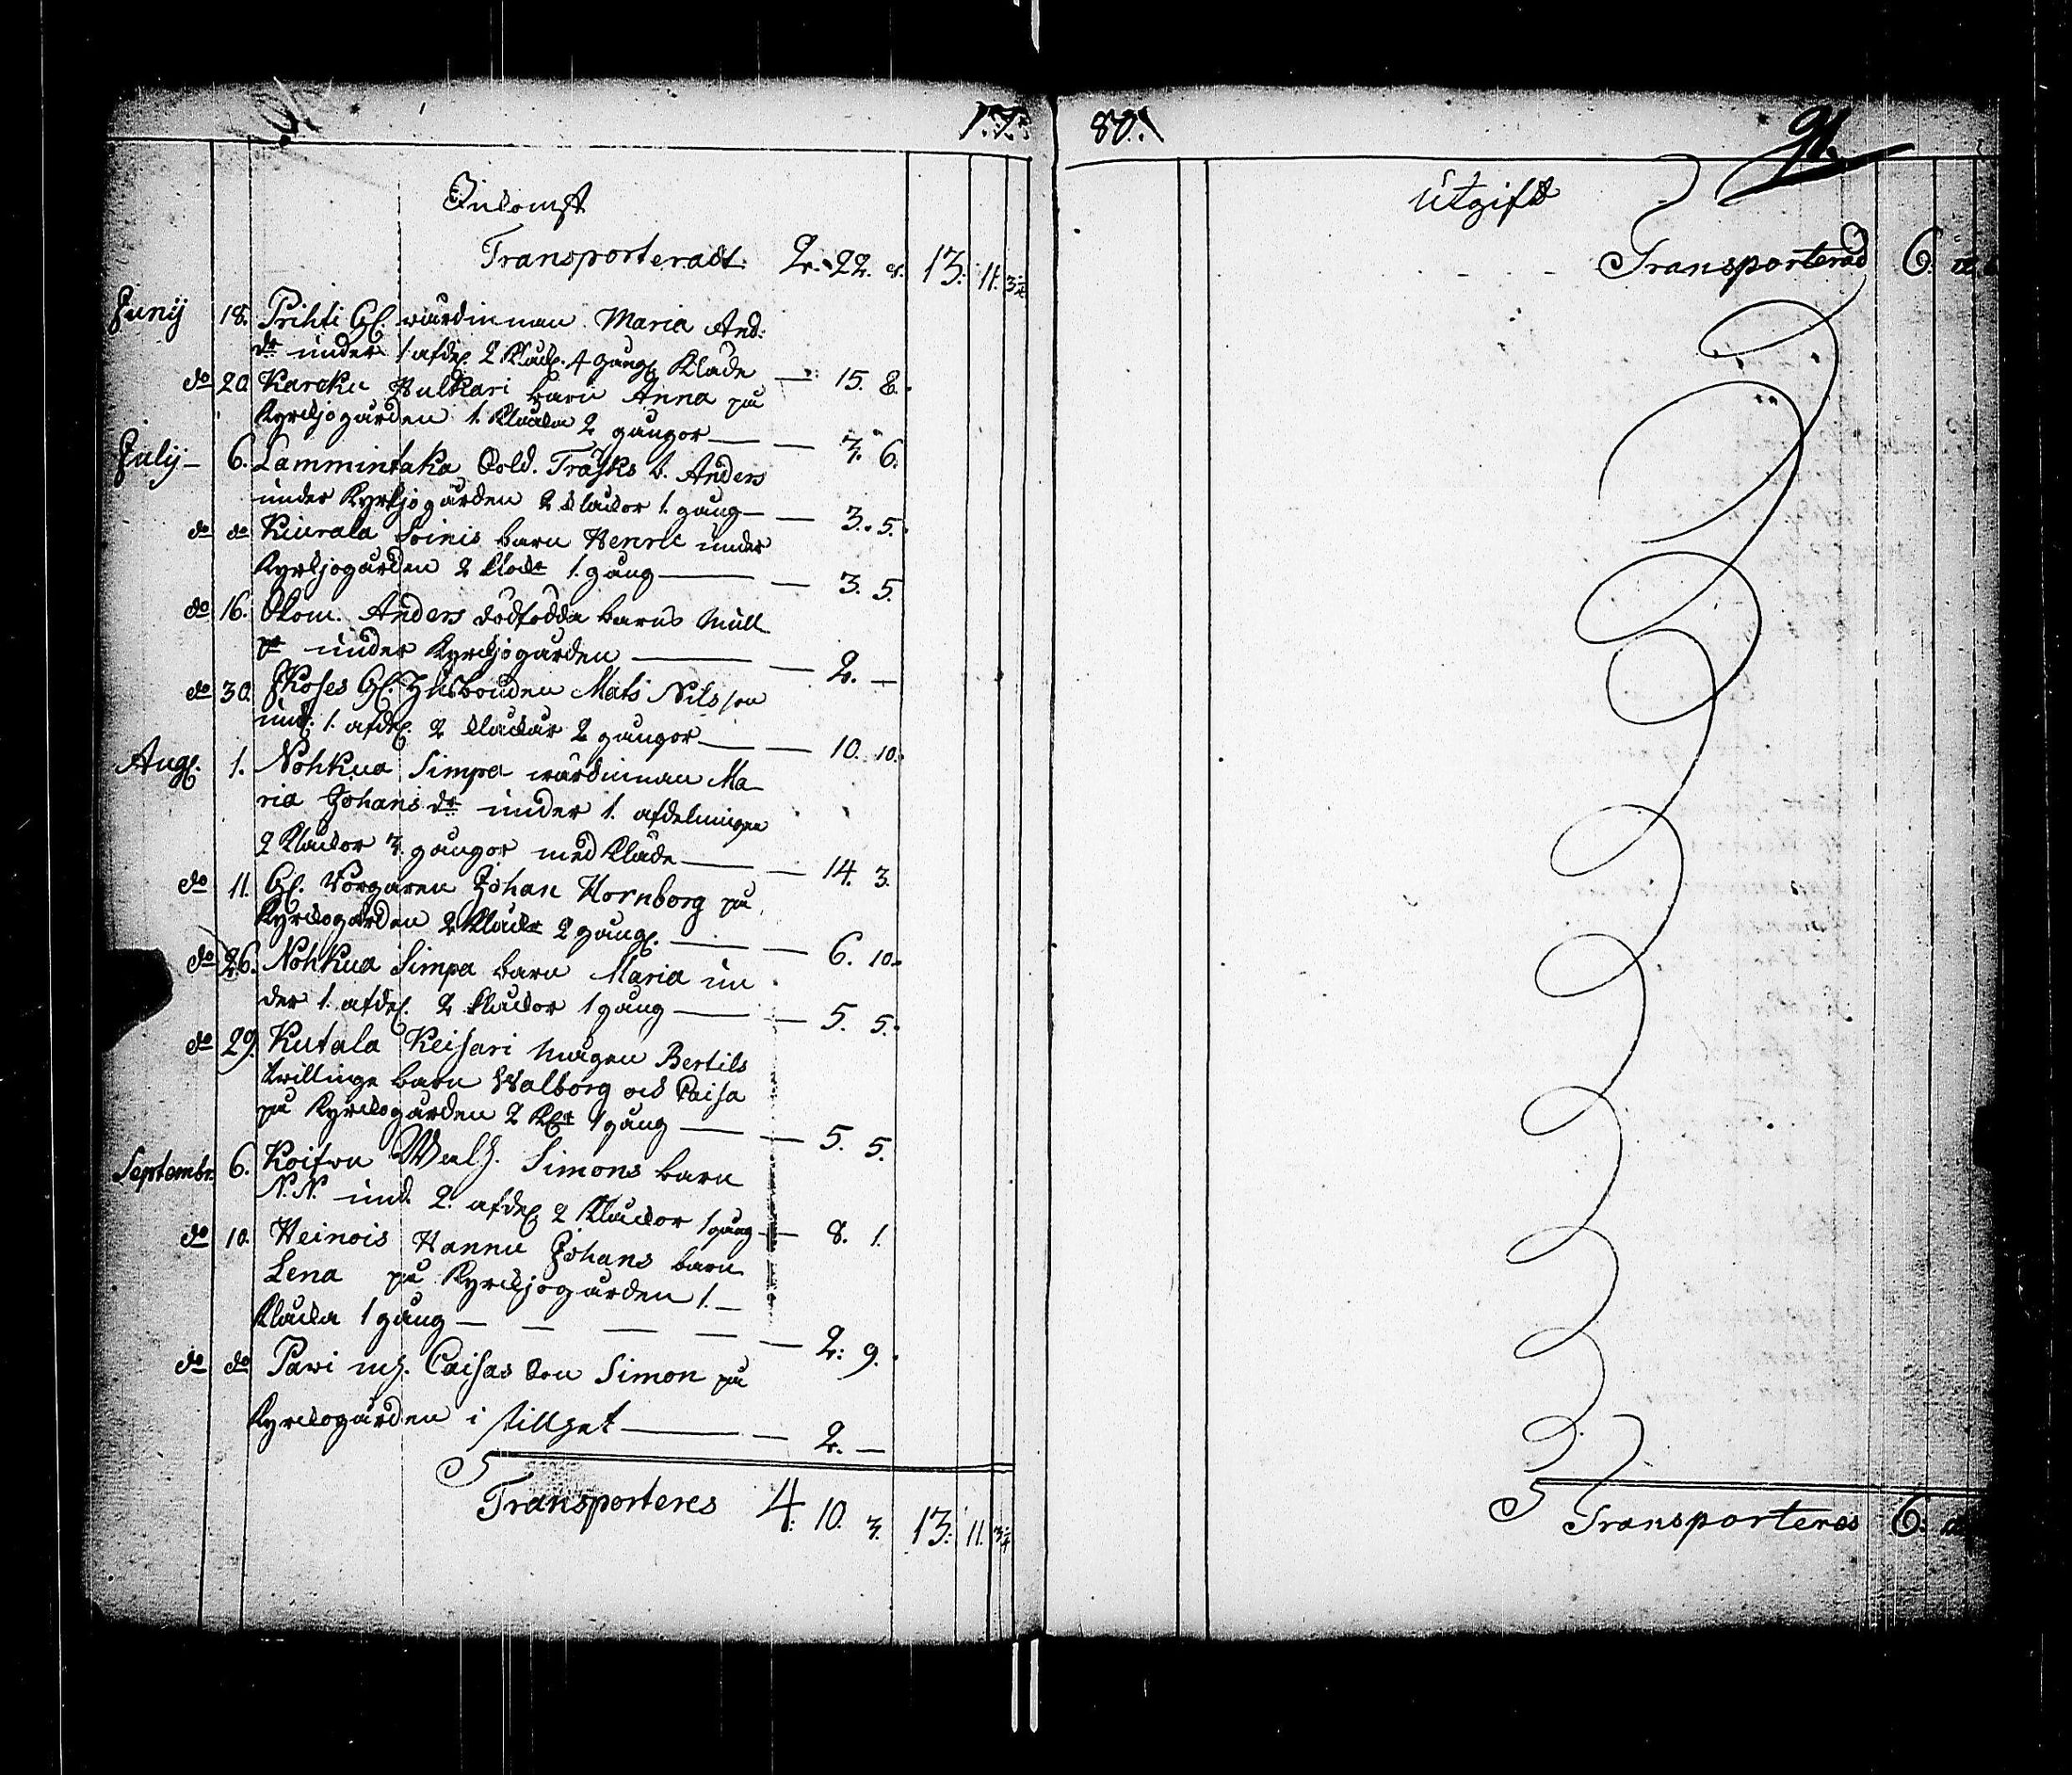 17
Inkomst
Transporteradt 2. 22. 8. 13. 11. 3 3/4
Junij 18. Prihti Gl. wärdinnan Maria And:
dr under 1 afdel. 2 Klåck. 4 gång. Kläde — 15. 8.
do 20. Karcku Hulkkari barn Anna på
Kyrckjogården 1. Klåcka 2 gångor — 3. 6.
Julij — 6. Lammintaka Sold. Träsks b. Anders
under Kyrkjogården 2 klåckor 1. gång — 3. 5.
do do Kiurala Soinis barn Henric under
Kyrkjogården 2 klockr 1. gång — 3. 5.
do 16. Anders dödfödda barns mull
under Kyrckjogården — 2. —
do 30. Skojes Gl. Husbonden Mats Nilsson
und. 1. afdel. 2 klåckår 2 gångor — 10. 10.
Aug. 1. Nohkua Simpa wärdinnan Ma-
ria Johans dr under 1. afdelningen
2 Klåckor 3. gångor med Kläde — 14. 3.
do 11. Gl. Borgaren Johan Hornborg på
Kyrckogården 2 Klåckr 2 gång. — 6. 10.
do 26. Nohkua Simpa barn Maria un
der 1. afdel. 2 klåckor 1 gång — 5. 5.
do 29. Kutala Keisari mågen Bertils
twillinge barn Walborg och Caisa
på Kyrckogården 2 Kl:r 1 gång — 5. 5.
Septembr. 6. Koifwu Simons barn
N. N. und. 2. afdel. 2 Klåckor 1 gång — 8. 1.
do 10. Heinois Hannu Johans barn
Lena på Kyrckjogården 1. —
Klåcka 1 gång — — — — — 2: 9.
do do Pawi Caisas son Simon på
Kyrckogården i stillhet — 2. —
Transporteres 4: 10. 3. 13: 11. 3 3/4
80. 91.
Utgift
Transporterad 6.
Transporteras 6.